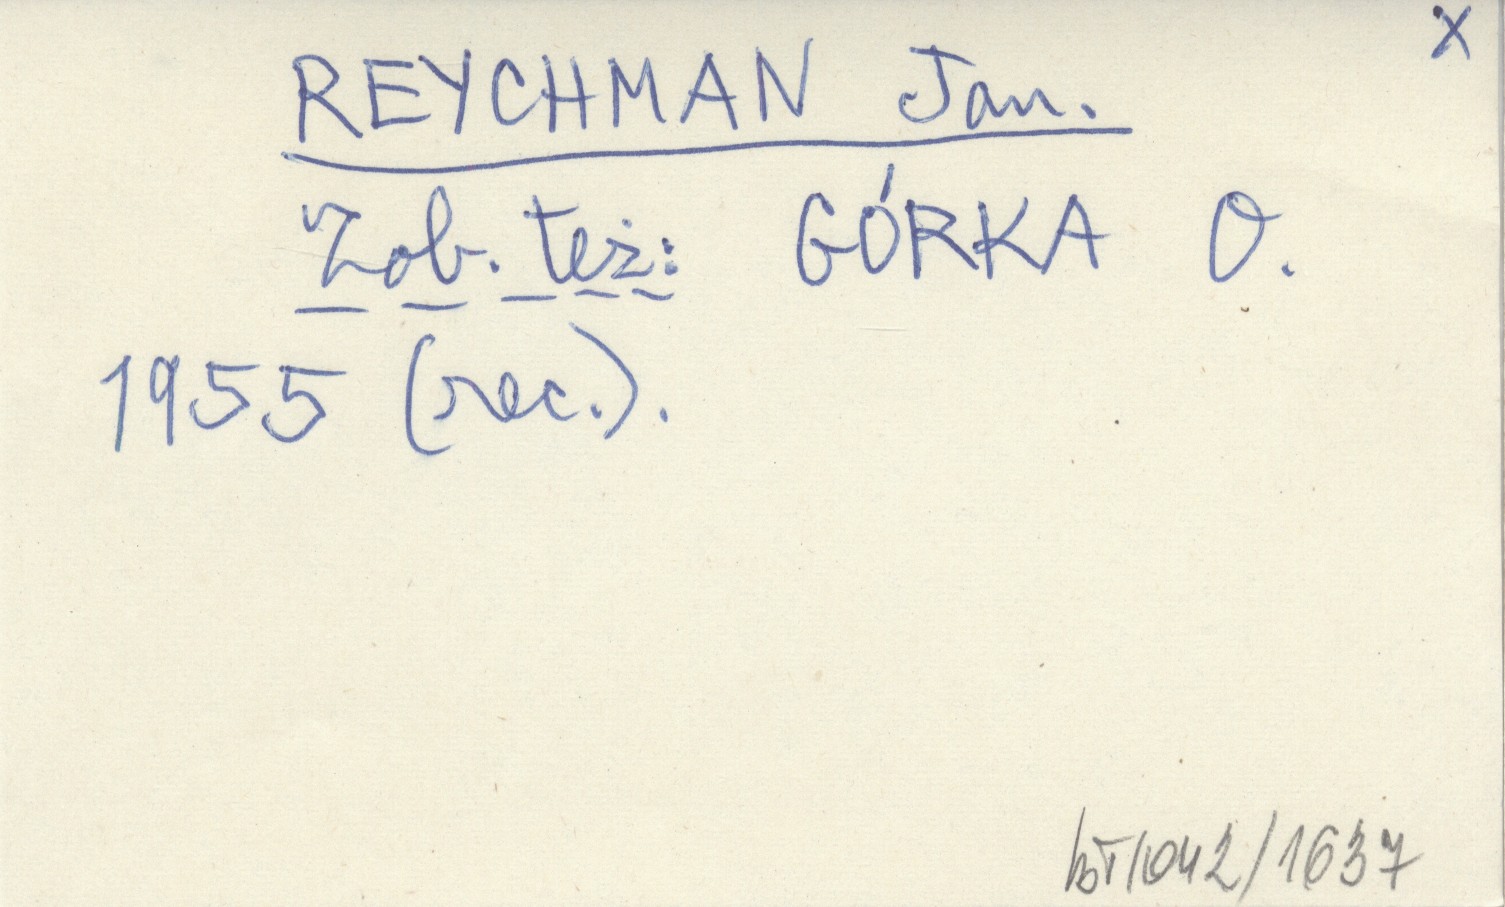 x
REYCHMAN Jan.
Zob. też: GÓRKA O.
1955 (rec.).
bT/1042/1637